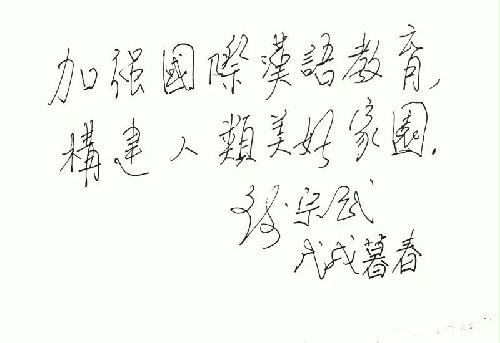 加强國際漢語教育，
構建人類美好家園．
宗武
戊戌暮春